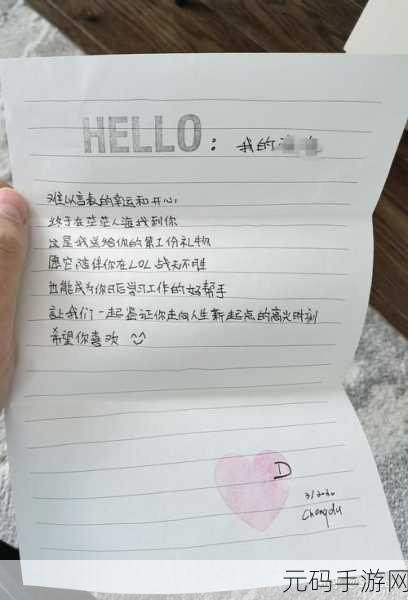 HELLO: 我的
难以言表的幸运和开心,
终于在茫茫人海找到你
这是我送给你的第1份礼物
愿它陪伴你在LOL战无不胜
也能成为你日后学习工作的好帮手
让我们一起鉴证你走向人生新起点的高光时刻
希望你喜欢
D
3/2020
Chengdu
元码手游网